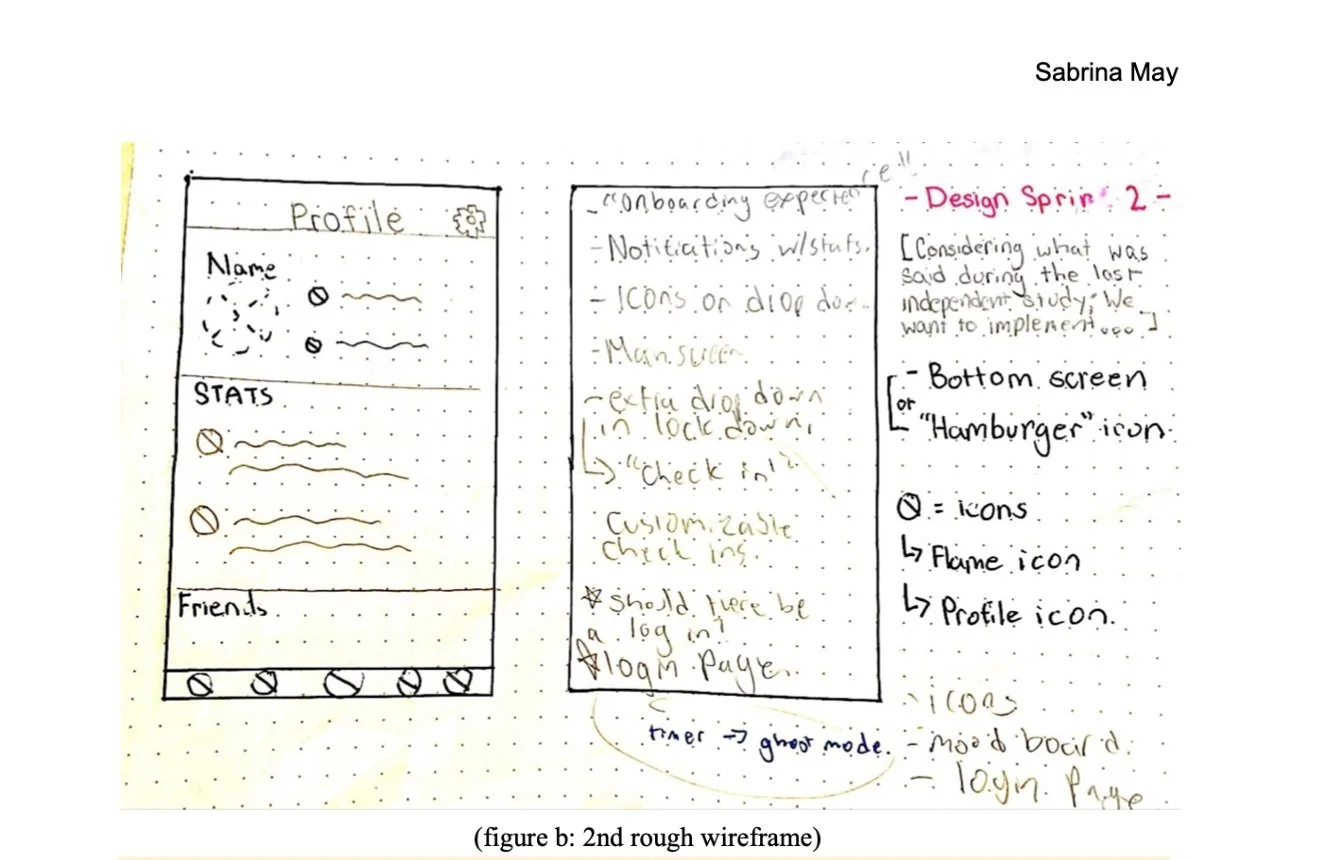 Sabrina May
Profile
Name
STATS
Friends
- "onboarding experience"
- Notifications w/stats.
- Icons on drop down
- extra drop down
in lock down,
↳ "Check in"?
Customizable
check ins.
☆ should there be
a log in?
☆ login Page
timer → ghost mode.
- Design Sprint 2 -
[Considering what was
said during the last
independent study; We
want to implement... ]
- Bottom screen
or
"Hamburger" icon
= icons
↳ Flame icon
↳ Profile icon.
- icons
- mood board
- login Page
(figure b: 2nd rough wireframe)